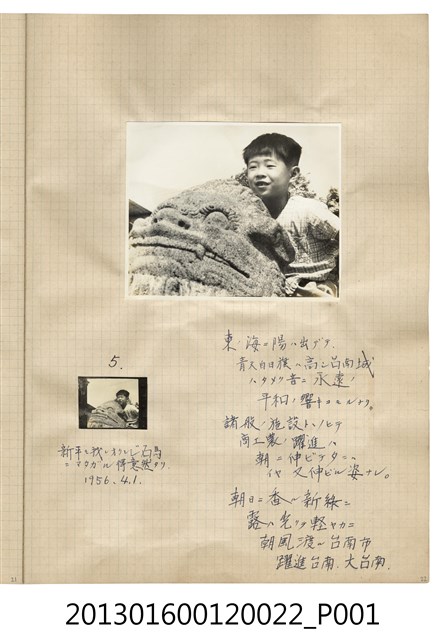 東ノ海ニ陽ハ出デタ
青天白日旗ハ高シ台南城
ハタメク音ニ永遠ノ
平和ノ響キコモルナリ。
諸般ノ施設トトノヒテ
商工農ノ躍進ハ
朝ニ伸ビ夕ニハ
又伸ビル姿ナレ。
朝日ニ香ル新緑ニ
露ハ光リ軽ヤカニ
朝風渡ル台南市
躍進台南、大台南
5.
石馬
得意然タリ
1956.4.1.
11
12
201301600120022_P001